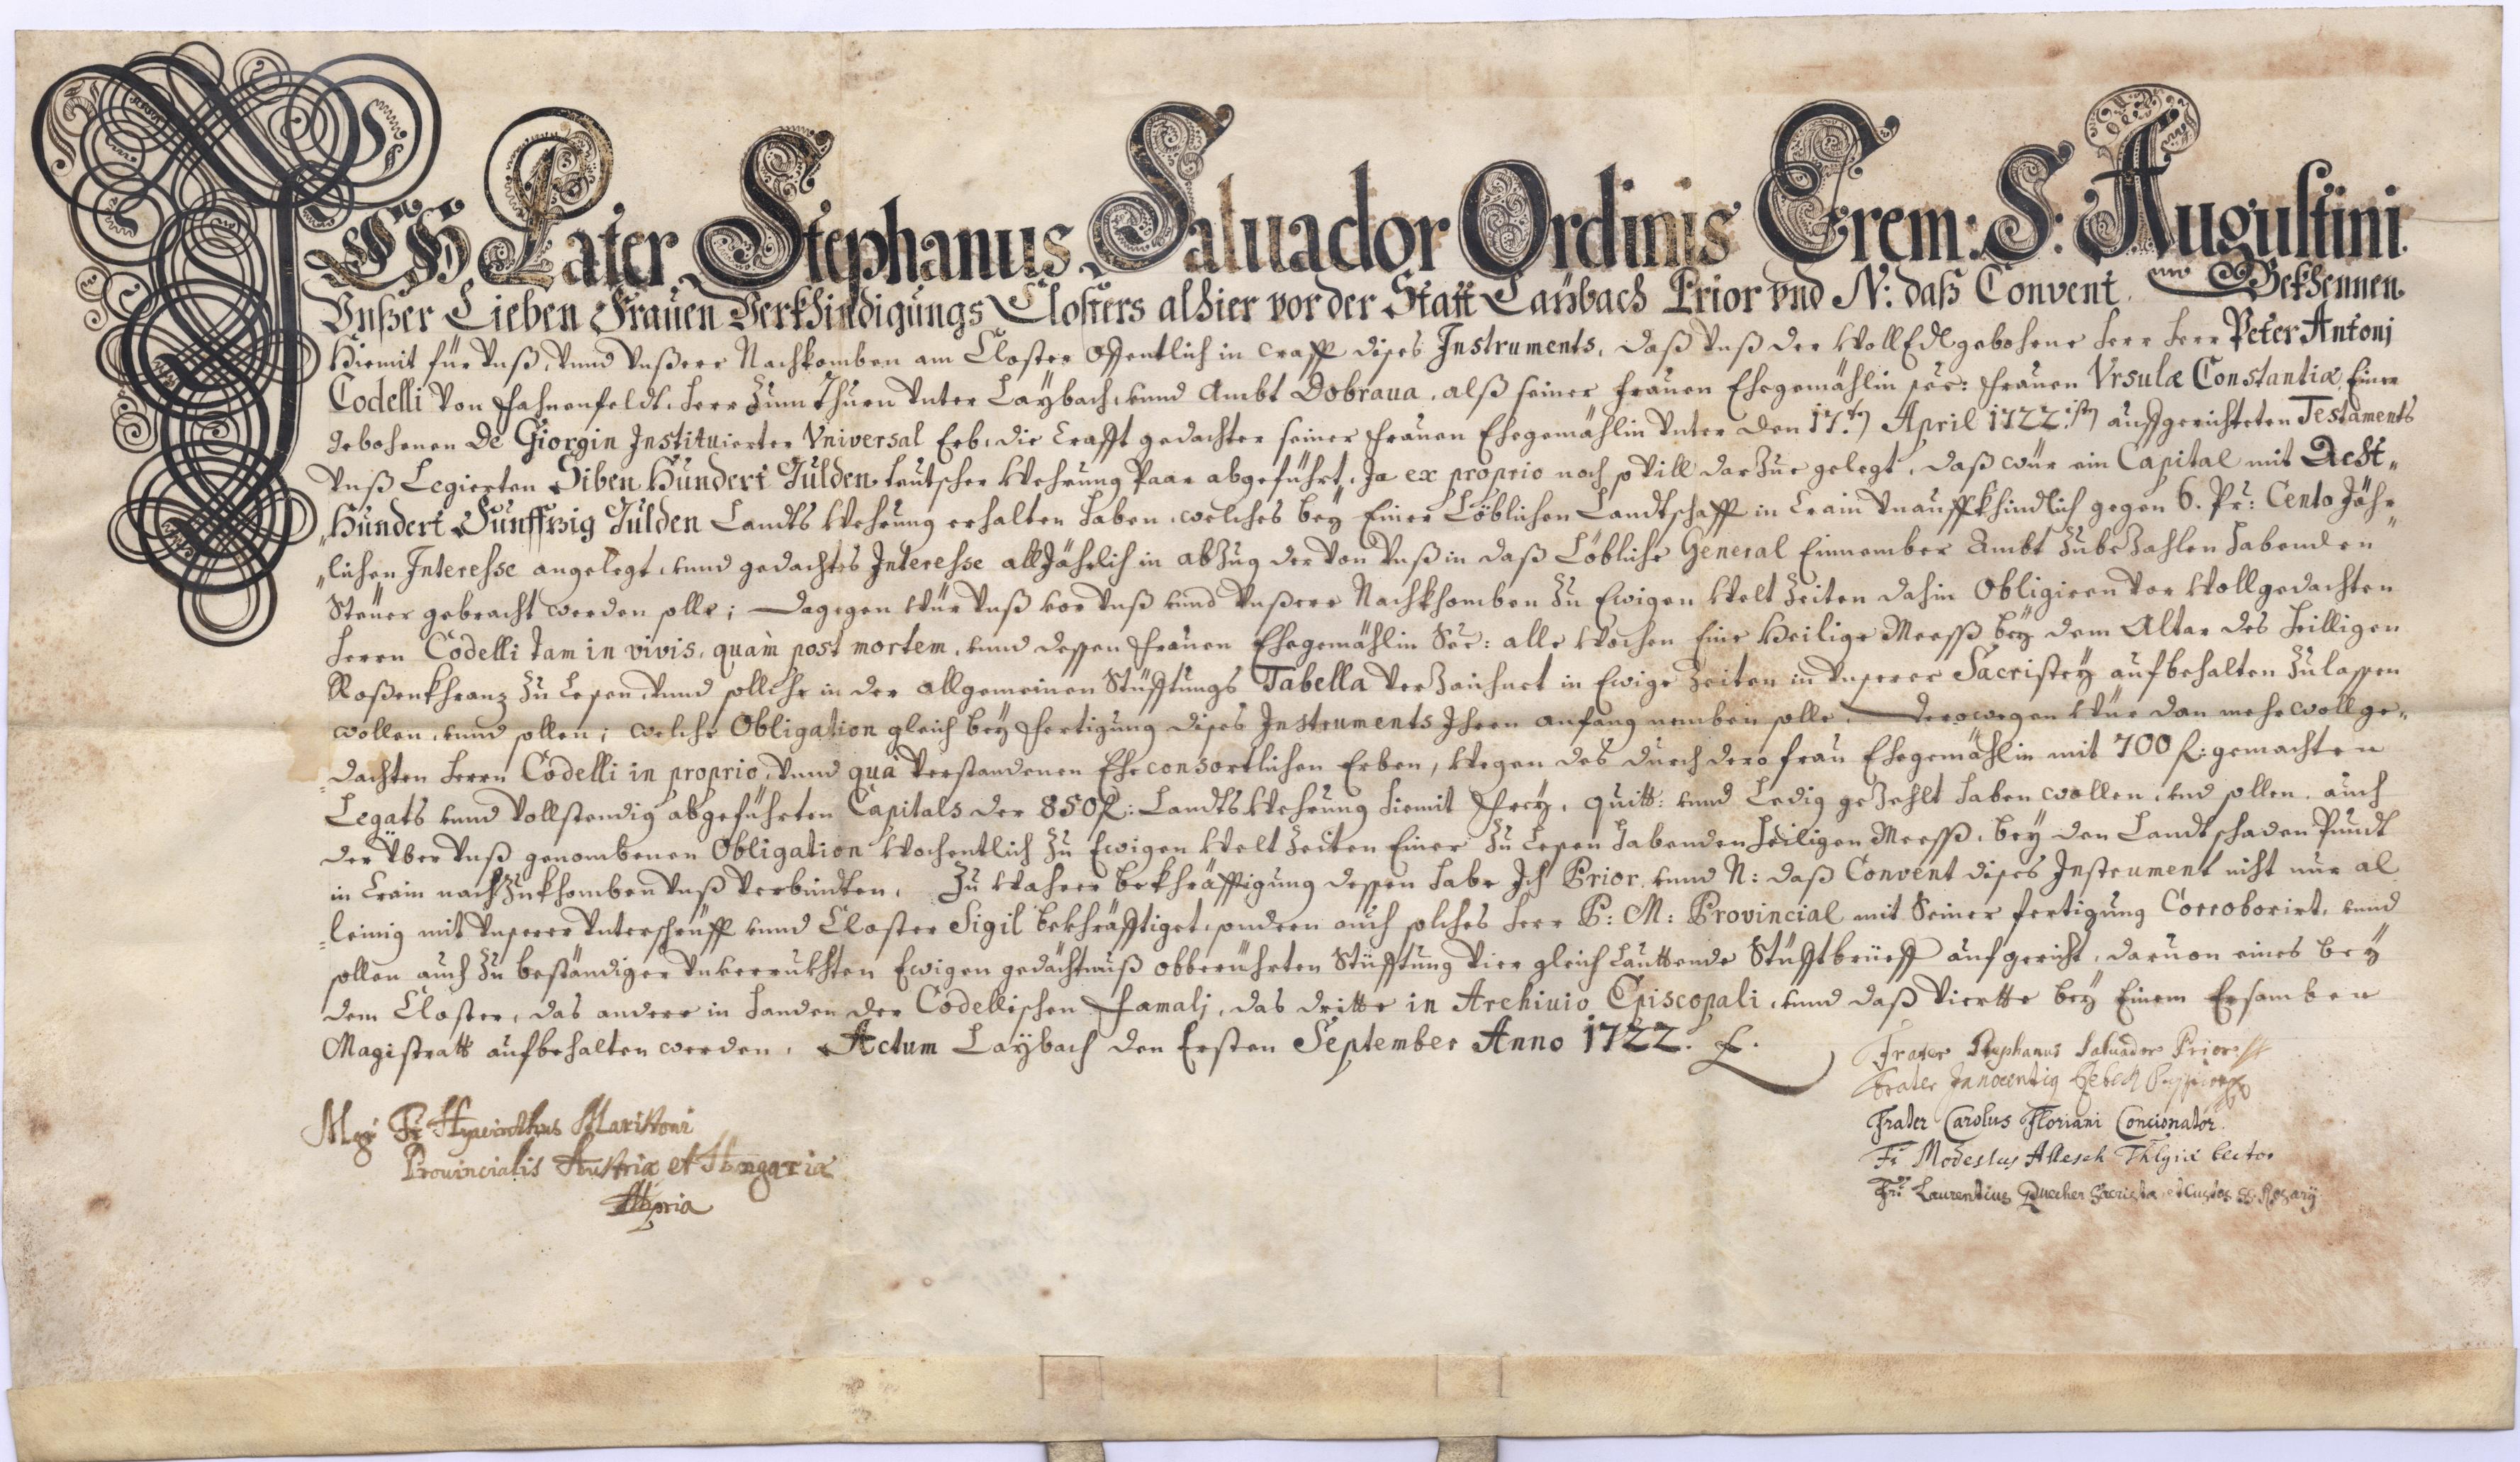 ICH Pater Stephanus Saluador Ordinis Erem: S: Augustini
Vnßer Lieben Frauen Verkhindigungs Closters alhier vor der Statt Laÿbach Prior vnd N: daß Convent Bekhennen
Hiemit für vnß, vnnd vnßere Nachkomben am Closter Offentlich in crafft dises Instruments, daß vnß der WollEdlgebohrne Herr Herr Peter Antonj
Codelli von Fahnenfeldt, Herr zum Thurn vnter Laÿbach, vnnd Ambt Dobraua, alß seiner Frauen Ehegemählin seel: Frauen Vrsulæ Constantiæ Einer
gebohrnen De Giorgin Instituierter Vniversal Erb, die Crafft gedachter seiner Frauen Ehegemählin vnter den 17.ten April 1722.isten auffgerichteten Testaments
vnß Legierten Siben Hundert Gulden teutscher Wehrung Paar abgeführt, Ja ex proprio noch so vill darzue gelegt, daß wür ein Capital mit Acht„
„Hundert Funffzig Gulden Landts Wehrung erhalten haben, welches beÿ Einer Löblichen Landtschafft in Crain vnauffkhindlich gegen 6. Pr: Cento Jähr„
„lichen Interesse angelegt, vnnd gedachtes Interesse allJährlich in abzug der von vnß in daß Löbliche General Einnember Ambt zubezahlen habenden
Steüer gebracht werden solle; Dagegen wür vnß vor vnß vnnd vnßere Nachkhomben zu Ewigen Welt Zeiten dahin Obligieren vor Wollgedachten
Herrn Codelli tam in vivis, quàm post mortem, vnnd dessen Frauen Ehegemählin Seel: alle Wochen Eine Heilige Meeß beÿ dem Altar des Heilligen
Roßenkhranz zu Lesen, vnnd solliche in der Allgemeinen Stüfftungs Tabella verzaichnet in Ewige Zeiten in vnserer Sacristeÿ aufbehalten zulassen
wollen, vnnd sollen; welche Obligation gleich beÿ Fertigung dises Instruments Ihren anfang nemben solle. Derowegen wür dan mehr wollge„
„dachten Herrn Codelli in proprio, vnnd quà verstandenen Eheconsortlichen Erben, wegen des durch dero Frau Ehegemählin mit 700 fl: gemachten
Legats vnnd vollstendig abgeführten Capitals der 850 fl: Landts Wehrung hiemit Freÿ, quitt: vnnd Ledig gezehlt haben wollen, vnd sollen, auch
der über vnß genombenen Obligation Wochentlich zu Ewigen Welt Zeiten Einer zu Lesen habenden Heiligen Meeß, beÿ den Landtschaden Pundt
in Crain nachzukhomben vnß verbindten. Zu Wahrer bekhräfftigung dessen habe Ich Prior, vnnd N: daß Convent dises Instrument nicht nur al
„leinig mit vnserer vnterschrüfft vnnd Closter Sigil bekhräfftiget, sondern auch solches Herr P: M: Provincial mit Seiner fertigung Corroborirt, vnnd
sollen auch zu beständiger vnverrukhten Ewigen gedächtnuß obberührten Stüfftung vier gleich Lauttende Stüfftbrüeff aufgericht, daruon eines beÿ
dem Closter, das andere in handen der Codellischen Famalj, das dritte in Archiuio Episcopali, vnnd daß viertte beÿ Einem Ersamben
Magistratt aufbehalten werden. Actum Laÿbach den Ersten September Anno 1722.
Frater Stephanus Saluador Prior
Frater Carolus Floriani Concionator.
Fr Modestus Allesch Lector
Fr: Laurentius Quecher Sacrista et Custos SS. Rosarij
Mgr Fr Hyacinthus Marittoni
Prouincialis Austriæ et Hungariæ